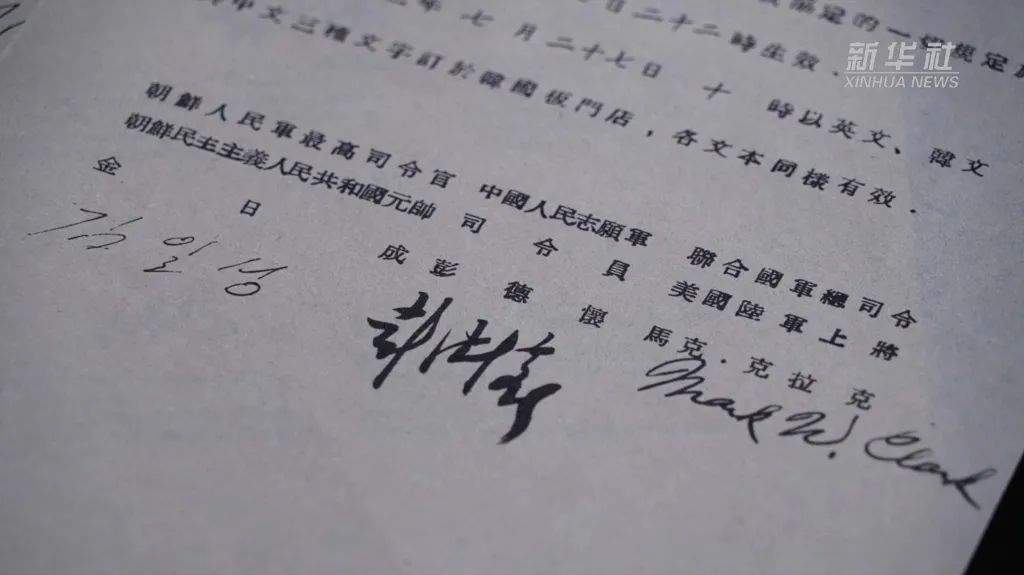 的一切規定
日二十二時生效．
年 七 月 二十七日 十 時以英文、韓文
中文三種文字訂於韓國板門店，各文本同樣有效．
朝鮮人民軍最高司令官 中國人民志願軍 聯合國軍總司令
朝鮮民主主義人民共和國元帥 司令員 美國陸軍上將
金 日 成 彭 德 懷 馬克·克拉克
김일성 彭德懷 Mark W. Clark
新华社
XINHUA NEWS